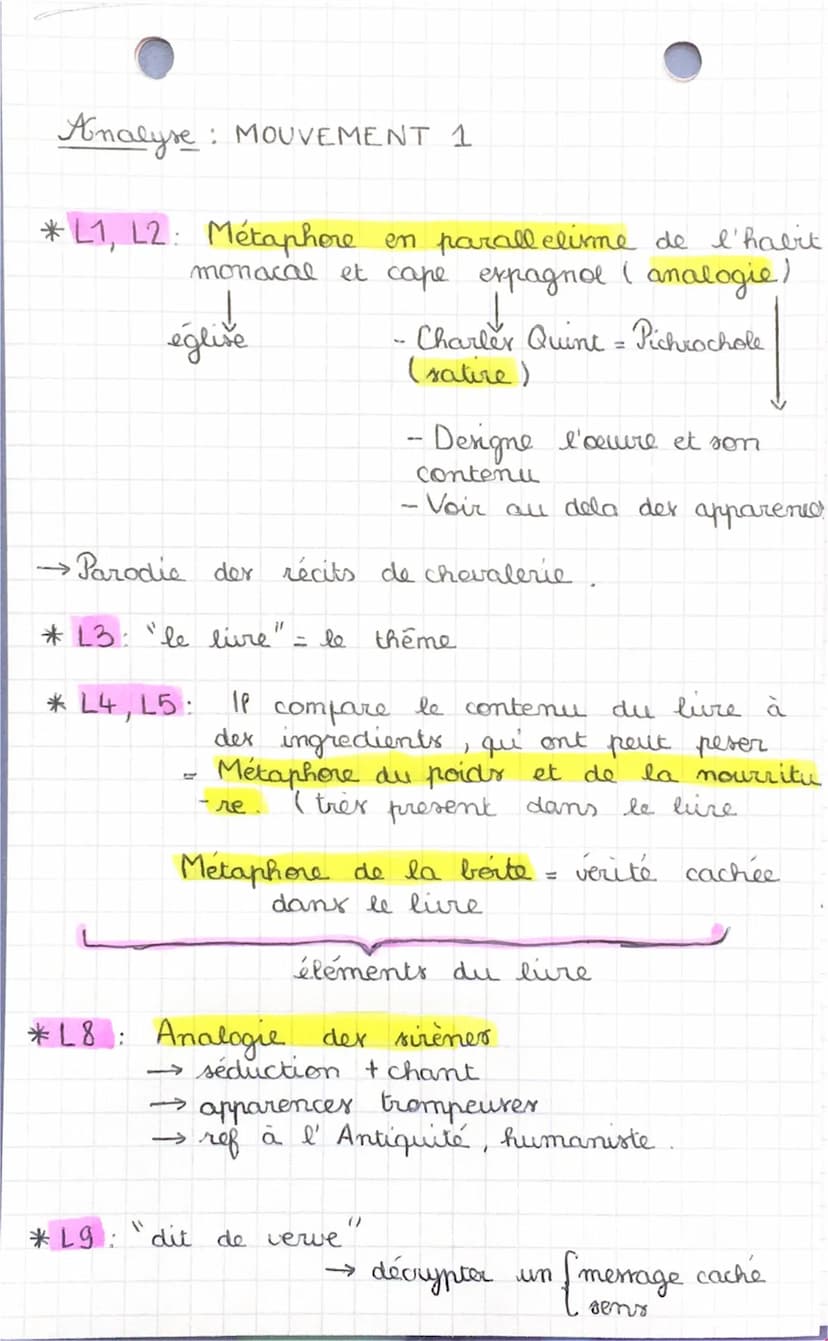 Analyse : MOUVEMENT 1
* L1, L2 : Métaphore en parallelisme de l'habit
monacal et cape espagnol ( analogie )
église
- Charles Quint = Pichrochole
( satire )
- Designe l'œuvre et son
contenu
- Voir au dela des apparences
→ Parodie des récits de chevalerie .
* L3 : "le livre" = le thême
* L4, L5 : Il compare le contenu du livre à
des ingredients , qu' ont peut peser
= Métaphore du poids et de la nourritu
- re . ( très present dans le livre
Métaphore de la boîte = vérité cachée
dans le livre
éléments du livre
* L8 : Analogie des sirènes
→ séduction + chant
→ apparences trompeuses
→ ref à l' Antiquité , humaniste .
* L9 : "dit de verve"
→ décrypter un { message caché
sens